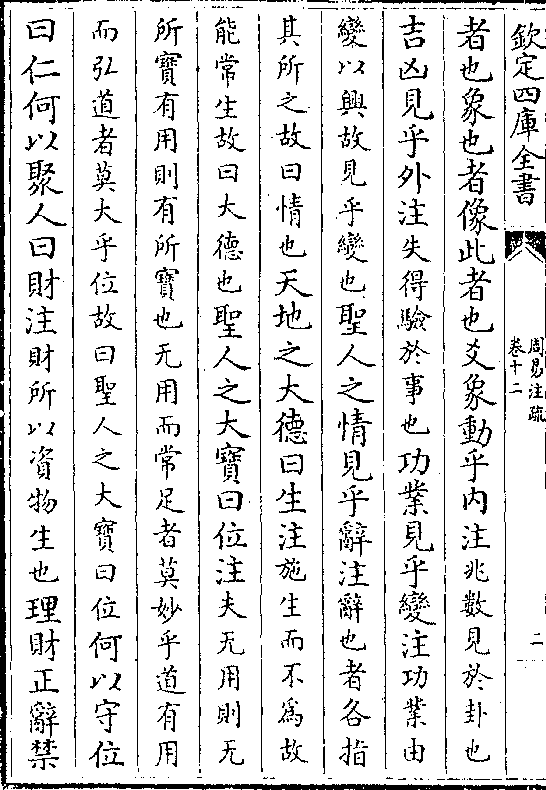 欽定四庫全書
周易注疏
卷十二
二
者也象也者像此者也爻象動乎内注兆數見於卦也
吉凶見乎外注失得驗於事也功業見乎變注功業由
變以興故見乎變也聖人之情見乎辭注辭也者各指
其所之故曰情也天地之大德曰生注施生而不為故
能常生故曰大德也聖人之大寶曰位注夫无用則无
所寶有用則有所寶也无用而常足者莫妙乎道有用
而弘道者莫大乎位故曰聖人之大寶曰位何以守位
曰仁何以聚人曰財注財所以資物生也理財正辭禁